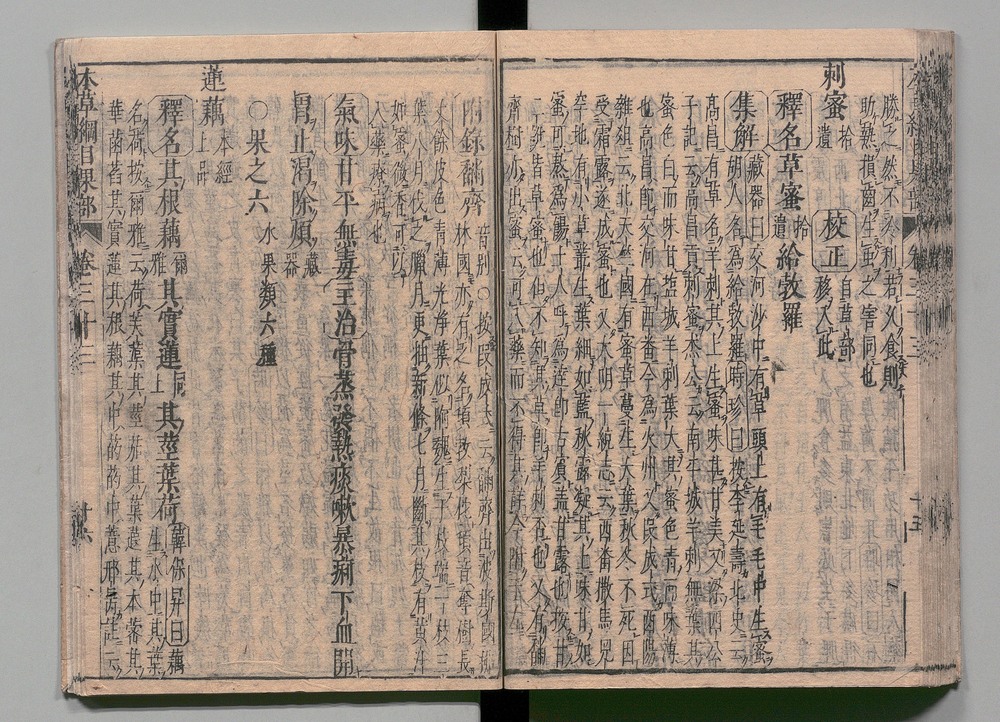 勝之然不多利若久食則
助熱損齒生蟲之害同也
刺蜜 拾遺 校正 自草部移入此
釋名草蜜 拾遺 給敦羅
集解 藏器曰交河沙中有草頭上有毛毛中生蜜
胡人名爲給敦羅時珍曰按李延壽北史云
高昌有草名羊刺其上生蜜味甚甘美又梁四公
子記云高昌貢刺蜜杰公云南平城羊刺無葉其
蜜色白而味甘鹽城羊刺葉大其蜜色青而味薄
也高昌即交河在西番今爲火州又段成式酉陽
雜俎云北天竺國有蜜草蔓生大葉秋冬不死因
受霜露遂成蜜也又大明一統志云西番撒馬兒
罕地有小草叢生葉細如藍秋露凝其上味甘如
蜜可熬爲餳土人呼爲達即古賓蓋甘露也按甘
二說皆草蜜也但不知其草即羊刺否也又有䤄
齊樹亦出蜜云可入藥而不得其詳今附
附錄䤄齊 音別○按段成式云䤄齊出波斯國
林國亦有之名頊敎梨樹長
丈餘皮色青薄光淨葉似阿魏生于枝端一枝三
葉八月伐之臘月更抽新條七月斷其枝有黃汁
如蜜微香可以
入藥療病也
氣味甘平無毒主治骨蒸發熱痰嗽暴痢下血開
胃止渴除煩 藏器
○果之六 水果類六種
蓮藕 本經上品
釋名其根藕 爾雅 其實蓮 同上 其莖葉荷 韓保昇曰藕
生水中其葉
名荷按爾雅云荷芙蕖其莖茄其葉蕸其本蔤其
華菡萏其實蓮其根藕其中菂菂中薏邢昺註云
本草綱目果部 卷三十三